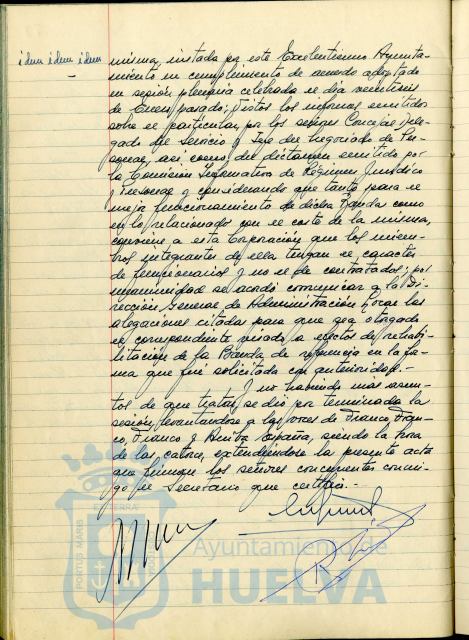 idem idem idem
misma, instada por este Excelentísimo Ayunta-
miento en cumplimiento de acuerdo adoptado
en sesión plenaria celebrada el día veintiseis
de Enero pasado; Vistos los informes emitidos
sobre el particular por los señores Concejal Dele-
gado del Servicio y Jefe del Negociado de Per-
sonal, así como del dictamen emitido por
la Comisión Informativa de Régimen Jurídico
y Personal y considerando que tanto para el
mejor funcionamiento de dicha Banda como
en lo relacionado con el coste de la misma,
conviene a esta Corporación que los miem-
bros integrantes de ella tengan el caracter
de funcionarios y no el de contratados; por
unanimidad se acordó comunicar a la Di-
rección General de Administración Local las
alegaciones citadas para que sea otorgado
el correspondiente visado a efectos de rehabi-
litación de la Banda de referencia en la for-
ma que fué solicitada con anterioridad.-
Y no habiendo mas asun-
tos de que tratar, se dió por terminada la
sesión, levantandose a las voces de Franco, Fran-
co, Franco y Arriba España, siendo la hora
de las catorce, extendiéndose la presente acta
que firman los señores concurrentes conmi-
go el Secretario que certifico.-
PORTUS MARIS
ET TERRAE
Ayuntamiento de
HUELVA